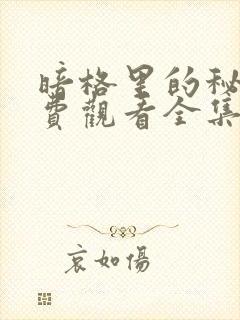 暗格里的秘
費觀看全集
哀如傷